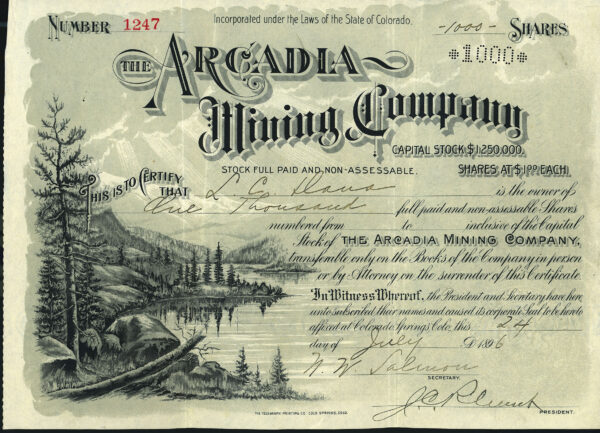 NUMBER 1247
Incorporated under the Laws of the State of Colorado.
-1000- SHARES
*1000*
THE ARCADIA
Mining Company
CAPITAL STOCK $1,250,000.
STOCK FULL PAID AND NON-ASSESSABLE.
SHARES AT $1.00 EACH.
THIS IS TO CERTIFY THAT L C Dana is the owner of
One Thousand full paid and non-assessable Shares
numbered from to inclusive of the Capital
Stock of THE ARCADIA MINING COMPANY,
transferable only on the Books of the Company in person
or by Attorney on the surrender of this Certificate.
In Witness Whereof, the President and Secretary have here-
unto subscribed their names and caused its corporate Seal to be hereto
affixed at Colorado Springs, Colo. this 24
day of July 1896
W. W. Salmon
SECRETARY.
J. C.
PRESIDENT.
THE TELEGRAPH PRINTING CO. COLO SPRINGS, COLO.